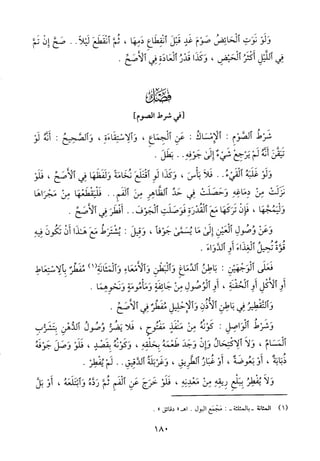 وَلَوْ نَوَتِ الْحَائِضُ صَوْمَ غَدٍ قَبْلَ انْقِطَاعِ دَمِهَا ، ثُمَّ انْقَطَعَ لَيْلاً.. صَحَّ إِنْ تَمَّ
فِي اللَّيْلِ أَكْثَرُ الْحَيْضِ ، وَكَذَا قَدْرُ الْعَادَةِ فِي الأَصَحِّ .
فَصْلٌ
[في شرط الصوم]
شَرْطُ الصَّوْمِ : الإِمْسَاكُ : عَنِ الْجِمَاعِ ، وَالاِسْتِقَاءَةِ ، وَالصَّحِيحُ : أَنَّهُ لَوْ
تَيَقَّنَ أَنَّهُ لَمْ يَرْجِعْ شَيْءٌ إِلَى جَوْفِهِ.. بَطَلَ .
وَلَوْ غَلَبَهُ الْقَيْءُ.. فَلاَ بَأْسَ ، وَكَذَا لَوِ اقْتَلَعَ نُخَامَةً وَلَفَظَهَا فِي الأَصَحِّ ، فَلَوْ
نَزَلَتْ مِنْ دِمَاغِهِ وَحَصَلَتْ فِي حَدِّ الظَّاهِرِ مِنَ الْفَمِ.. فَلْيَقْطَعْهَا مِنْ مَجْرَاهَا
وَلْيَمُجَّهَا ، فَإِنْ تَرَكَهَا مَعَ الْقُدْرَةِ فَوَصَلَتِ الْجَوْفَ.. أَفْطَرَ فِي الأَصَحِّ .
وَعَنْ وُصُولِ الْعَيْنِ إِلَى مَا يُسَمَّى جَوْفاً ، وَقِيلَ : يُشْتَرَطُ مَعَ هَذَا أَنْ تَكُونَ فِيهِ
قُوَّةٌ تُحِيلُ الْغِذَاءَ أَوِ الدَّوَاءَ .
فَعَلَى الْوَجْهَيْنِ : بَاطِنُ الدِّمَاغِ وَالْبَطْنِ وَالأَمْعَاءِ وَالْمَثَانَةِ(١) مُفَطِّرٌ بِالاِسْتِعَاطِ
أَوِ الأَكْلِ أَوِ الْحُقْنَةِ ، أَوِ الْوُصُولِ مِنْ جَائِفَةٍ وَمَأْمُومَةٍ وَنَحْوِهِمَا .
وَالتَّقْطِيرُ فِي بَاطِنِ الأُذُنِ وَالإِحْلِيلِ مُفَطِّرٌ فِي الأَصَحِّ .
وَشَرْطُ الْوَاصِلِ : كَوْنُهُ مِنْ مَنْفَذٍ مَفْتُوحٍ ، فَلاَ يَضُرُّ وُصُولُ الدُّهْنِ بِتَشَرُّبِ
الْمَسَامِّ ، وَلاَ الاِكْتِحَالُ وَإِنْ وَجَدَ طَعْمَهُ بِحَلْقِهِ ، وَكَوْنُهُ بِقَصْدٍ ، فَلَوْ وَصَلَ جَوْفَهُ
ذُبَابَةٌ ، أَوْ بَعُوضَةٌ ، أَوْ غُبَارُ الطَّرِيقِ ، وَغَرْبَلَةُ الدَّقِيقِ.. لَمْ يُفْطِرْ .
وَلاَ يُفْطِرُ بِبَلْعِ رِيقِهِ مِنْ مَعْدِنِهِ ، فَلَوْ خَرَجَ عَنِ الْفَمِ ثُمَّ رَدَّهُ وَابْتَلَعَهُ ، أَوْ بَلَّ
(١) المثانة - بالمثلثة - : مجمع البول . اهـ « دقائق » .
١٨٠